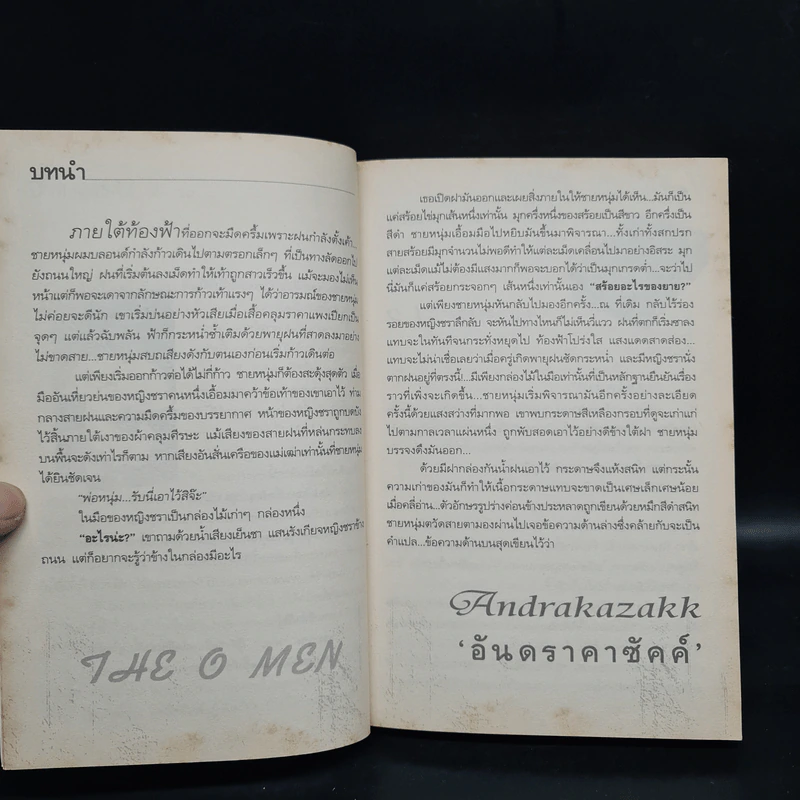 บทนำ
ภายใต้ท้องฟ้าที่ออกจะมืดครึ้มเพราะฝนกำลังตั้งเค้า...
ชายหนุ่มผมบลอนด์กำลังก้าวเดินไปตามตรอกเล็กๆ ที่เป็นทางลัดออกไป
ยังถนนใหญ่ ฝนที่เริ่มต้นลงเม็ดทำให้เท้าถูกสาวเร็วขึ้น แม้จะมองไม่เห็น
หน้าแต่ก็พอจะเดาจากลักษณะการก้าวเท้าแรงๆ ได้ว่าอารมณ์ของชายหนุ่ม
ไม่ค่อยจะดีนัก เขาเริ่มบ่นอย่างหัวเสียเมื่อเสื้อคลุมราคาแพงเปียกเป็น
จุดๆ แต่แล้วฉับพลัน ฟ้าก็กระหน่ำซ้ำเติมด้วยพายุฝนที่สาดลงมาอย่าง
ไม่ขาดสาย...ชายหนุ่มสบถเสียงดังกับตนเองก่อนเริ่มก้าวเดินต่อ
แต่เพียงเริ่มออกก้าวต่อได้ไม่กี่ก้าว ชายหนุ่มก็ต้องสะดุ้งสุดตัว เมื่อ
มืออันเหี่ยวย่นของหญิงชราคนหนึ่งเอื้อมมาคว้าข้อเท้าของเขาเอาไว้ ท่าม
กลางสายฝนและความมืดครึ้มของบรรยากาศ หน้าของหญิงชราถูกบดบัง
ไว้สิ้นภายใต้เงาของผ้าคลุมศีรษะ แม้เสียงของสายฝนที่หล่นกระทบลง
บนพื้นจะดังเท่าไรก็ตาม หากเสียงอันสั่นเครือของแม่เฒ่าเท่านั้นที่ชายหนุ่ม
ได้ยินชัดเจน
“พ่อหนุ่ม...รับนี่เอาไว้สิจ๊ะ”
ในมือของหญิงชราเป็นกล่องไม้เก่าๆ กล่องหนึ่ง
“อะไรน่ะ?” เขาถามด้วยน้ำเสียงเย็นชา แสนรังเกียจหญิงชราข้าง
ถนน แต่ก็อยากจะรู้ว่าข้างในกล่องมีอะไร
THE O MEN
เธอเปิดฝามันออกและเผยสิ่งภายในให้ชายหนุ่มได้เห็น...มันก็เป็น
แค่สร้อยไข่มุกเส้นหนึ่งเท่านั้น มุกครึ่งหนึ่งของสร้อยเป็นสีขาว อีกครึ่งเป็น
สีดำ ชายหนุ่มเอื้อมมือไปหยิบมันขึ้นมาพิจารณา...ทั้งเก่าทั้งสกปรก
สายสร้อยมีมุกจำนวนไม่พอดีทำให้แต่ละเม็ดเคลื่อนไปมาอย่างอิสระ มุก
แต่ละเม็ดแม้ไม่ต้องมีแสงมากก็พอจะบอกได้ว่าเป็นมุกเกรดต่ำ...จะว่าไป
นี่มันก็แค่สร้อยกระจอกๆ เส้นหนึ่งเท่านั้นเอง “สร้อยอะไรของยาย?”
แต่เพียงชายหนุ่มหันกลับไปมองอีกครั้ง...ณ ที่เดิม กลับไร้ร่อง
รอยของหญิงชราลึกลับ จะหันไปทางไหนก็ไม่เห็นวี่แวว ฝนที่ตกก็เริ่มซาลง
แทบจะในทันทีจนกระทั่งหยุดไป ท้องฟ้าโปร่งใส แสงแดดสาดส่อง...
แทบจะไม่น่าเชื่อเลยว่าเมื่อครู่เกิดพายุฝนซัดกระหน่ำ และมีหญิงชรานั่ง
ตากฝนอยู่ที่ตรงนี้!...มีเพียงกล่องไม้ในมือเท่านั้นที่เป็นหลักฐานยืนยันเรื่อง
ราวที่เพิ่งจะเกิดขึ้น...ชายหนุ่มเริ่มพิจารณามันอีกครั้งอย่างละเอียด
ครั้งนี้ด้วยแสงสว่างที่มากพอ เขาพบกระดาษสีเหลืองกรอบที่ดูจะเก่าแก่
ไปตามกาลเวลาแผ่นหนึ่ง ถูกพับสอดเอาไว้อย่างดีข้างใต้ฝา ชายหนุ่ม
บรรจงดึงมันออก...
ด้วยมีฝากล่องกันน้ำฝนเอาไว้ กระดาษจึงแห้งสนิท แต่กระนั้น
ความเก่าของมันก็ทำให้เนื้อกระดาษแทบจะขาดเป็นเศษเล็กเศษน้อย
เมื่อคลี่อ่าน...ตัวอักษรรูปร่างค่อนข้างประหลาดถูกเขียนด้วยหมึกสีดำสนิท
ชายหนุ่มตวัดสายตามองผ่านไปเจอข้อความด้านล่างซึ่งคล้ายกับจะเป็น
คำแปล...ข้อความด้านบนสุดเขียนไว้ว่า
Andrakazakk
‘อันดราคาซัคค์’